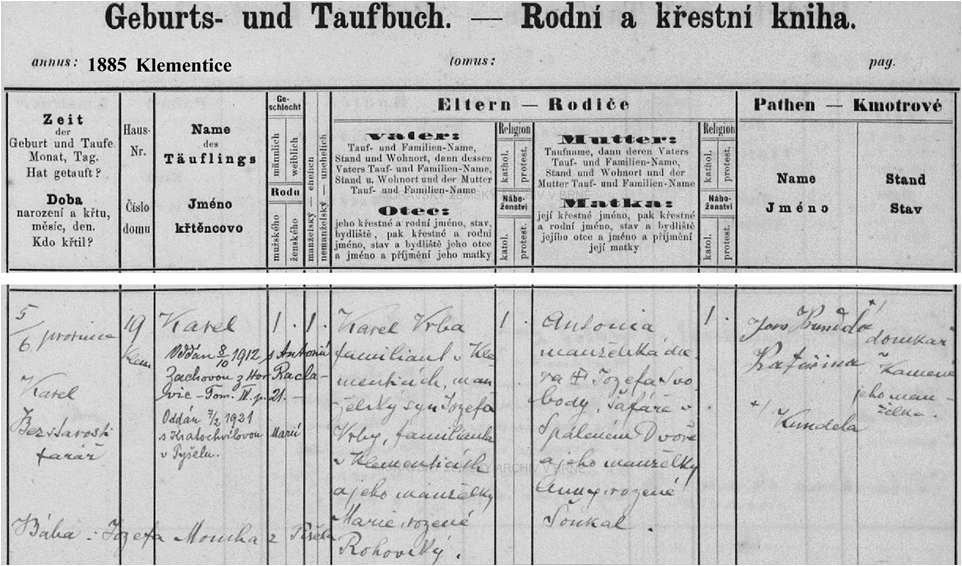 Geburts- und Taufbuch. — Rodní a křestní kniha.
annus: 1885 Klementice tomus: pag.
Zeit
der
Geburt und Taufe.
Monat, Tag.
Hat getauft?
Doba
narození a křtu,
měsíc, den.
Kdo křtil?
Haus-
Nr.
Číslo
domu
Name
des
Täuflings
Jméno
křtěncovo
Ge-
schlecht
männlich
weiblich
Rodu
mužského
ženského
manželský — ehelich
nemanželský — unehelich
Eltern — Rodiče
Vater:
Tauf- und Familien-Name,
Stand und Wohnort, dann dessen
Vaters Tauf- und Familien-Name,
Stand u. Wohnort und der Mutter
Tauf- und Familien-Name
Otec:
jeho křestné a rodní jméno, stav,
bydliště, pak křestné a rodní
jméno, stav a bydliště jeho otce
a jméno a příjmení jeho matky
Religion
kathol.
protest.
Nábo-
ženství
katol.
protest.
Mutter:
Taufname, dann deren Vaters
Tauf- und Familien-Name,
Stand und Wohnort und der
Mutter Tauf- und Familien-Name
Matka:
její křestné jméno, pak křestné
a rodní jméno, stav a bydliště
jejího otce a jméno a příjmení
její matky
Religion
kathol.
protest.
Nábo-
ženství
katol.
protest.
Pathen — Kmotrové
Name
Jméno
Stand
Stav
5/6 prosince
Karel
Bezstarosti
farář
19
Klem
Karel
Oddán 8/10 1912 s Antonií
Zachovou z Hor. Racla-
vic - Tom. IV. p. 21. -
Oddán 7/2 1921
s Kratochvílovou Marií
v Pyšelu.
1. 1.
Karel Vrba
familiant v Kle-
menticích, man-
želský syn Jozefa
Vrby, familianta
v Klementicích
a jeho manželky
Marie, rozené
Rohovský.
1.
Antonia
manželská dce-
ra Jozefa Svo-
body, šafáře v
Spáleném Dvoře
a jeho manželky
Anny, rozené
Soukal.
1.
Kateřina
Kundela
domkář
jeho man-
želka.
Bába: Jozefa Moucha z Pyšela